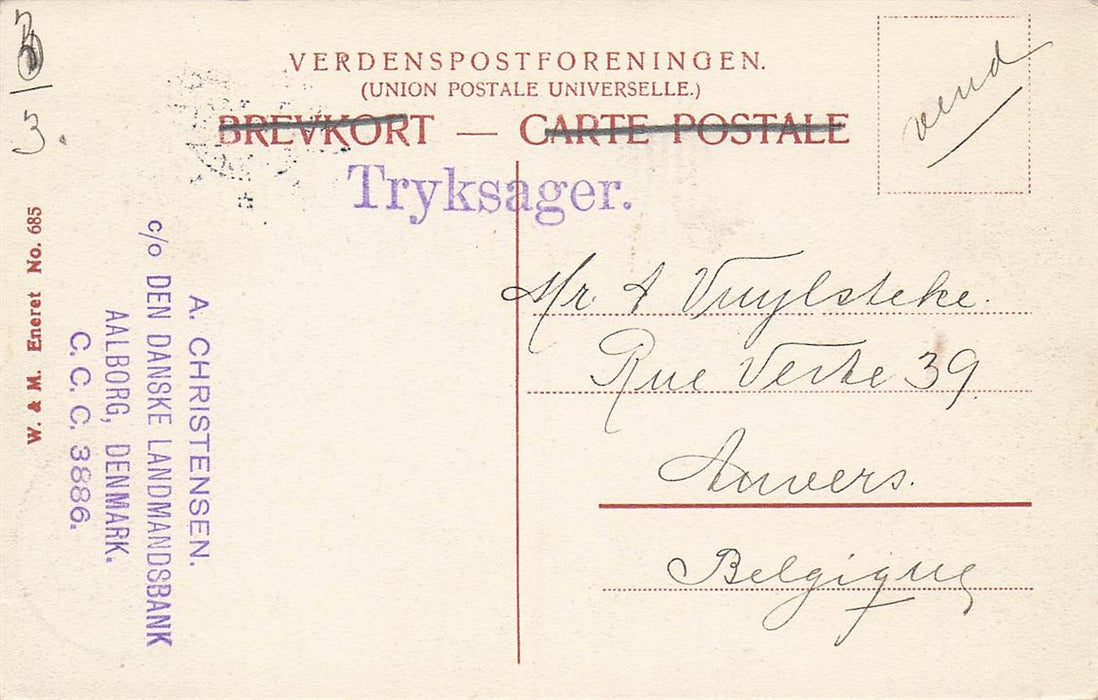 VERDENSPOSTFORENINGEN.
(UNION POSTALE UNIVERSELLE.)
BREVKORT — CARTE POSTALE
Tryksager.
vend
3.
W. & M. Eneret No. 685
A. CHRISTENSEN.
c/o DEN DANSKE LANDMANDSBANK
AALBORG, DENMARK.
C. C. C. 3886.
Mr A Vuylsteke.
Rue Verte 39
Anvers.
Belgique